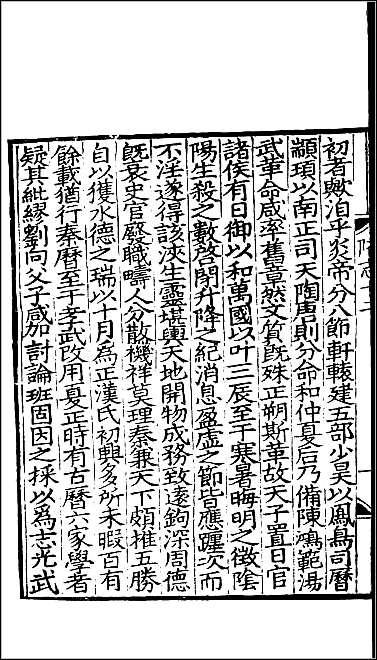 初者歟洎乎炎帝分八節軒轅建五部少昊以鳳鳥司曆
顓頊以南正司天陶唐則分命和仲夏后乃備陳鴻範湯
武革命咸率舊章然文質既殊正朔斯革故天子置日官
諸侯有日御以和萬國以叶三辰至于寒暑晦明之徵陰
陽生殺之數啓閉升降之紀消息盈虛之節皆應躔次而
不淫遂得該浹生靈堪輿天地開物成務致遠鉤深周德
既衰史官廢職疇人分散機祥莫理秦兼天下頗推五勝
自以獲水德之瑞以十月為正漢氏初興多所未暇百有
餘載猶行秦曆至于孝武改用夏正時有古曆六家學者
疑其紕繆劉向父子咸加討論班固因之採以為志光武